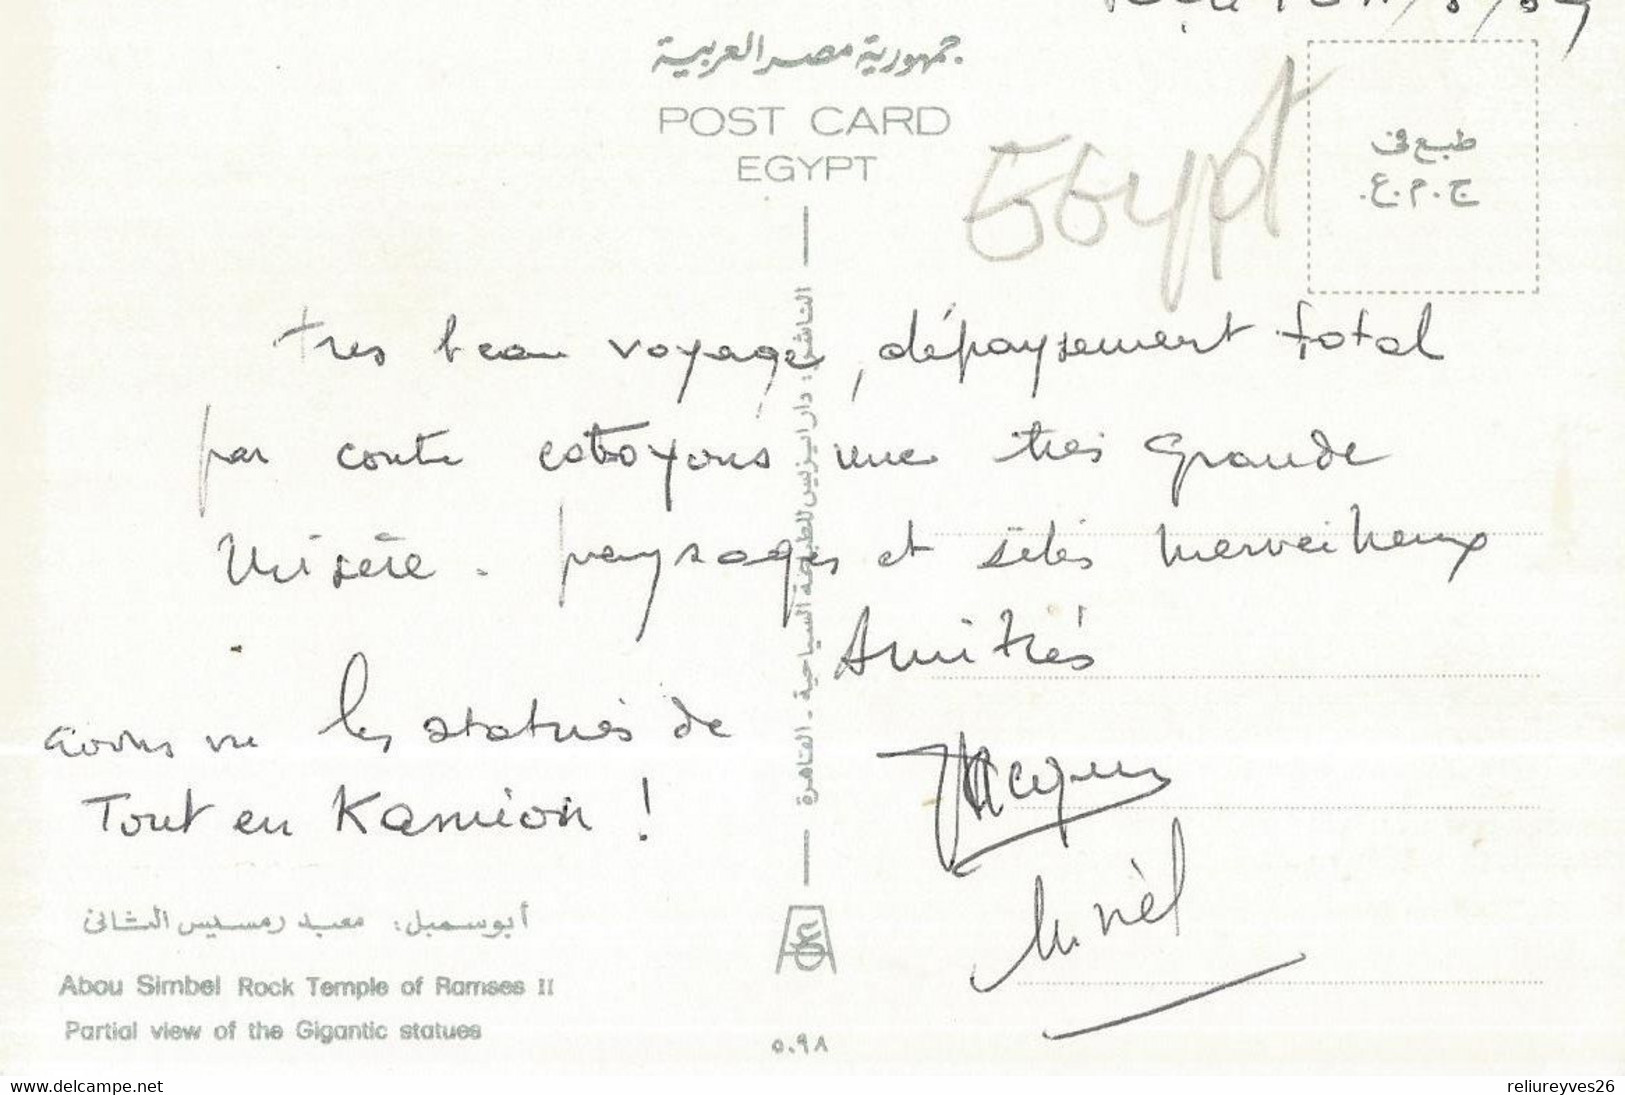 جمهورية مصر العربية
POST CARD
EGYPT
EGypt
طبع في
ج.م.ع.
tres beau voyage, dépaysement total
par contre cotoyons une très Grande
Misère. paysages et sites merveilleux
Amitiés
avons vu les statues de
Tout en Kamion !
Jacques
Muriel
الناشر: دار ايزيس للطباعة السياحية - القاهرة
أبو سمبل: معبد رمسيس الثاني
Abou Simbel Rock Temple of Ramses II
Partial view of the Gigantic statues
٥٠٩٨
www.delcampe.net
reliureyves26